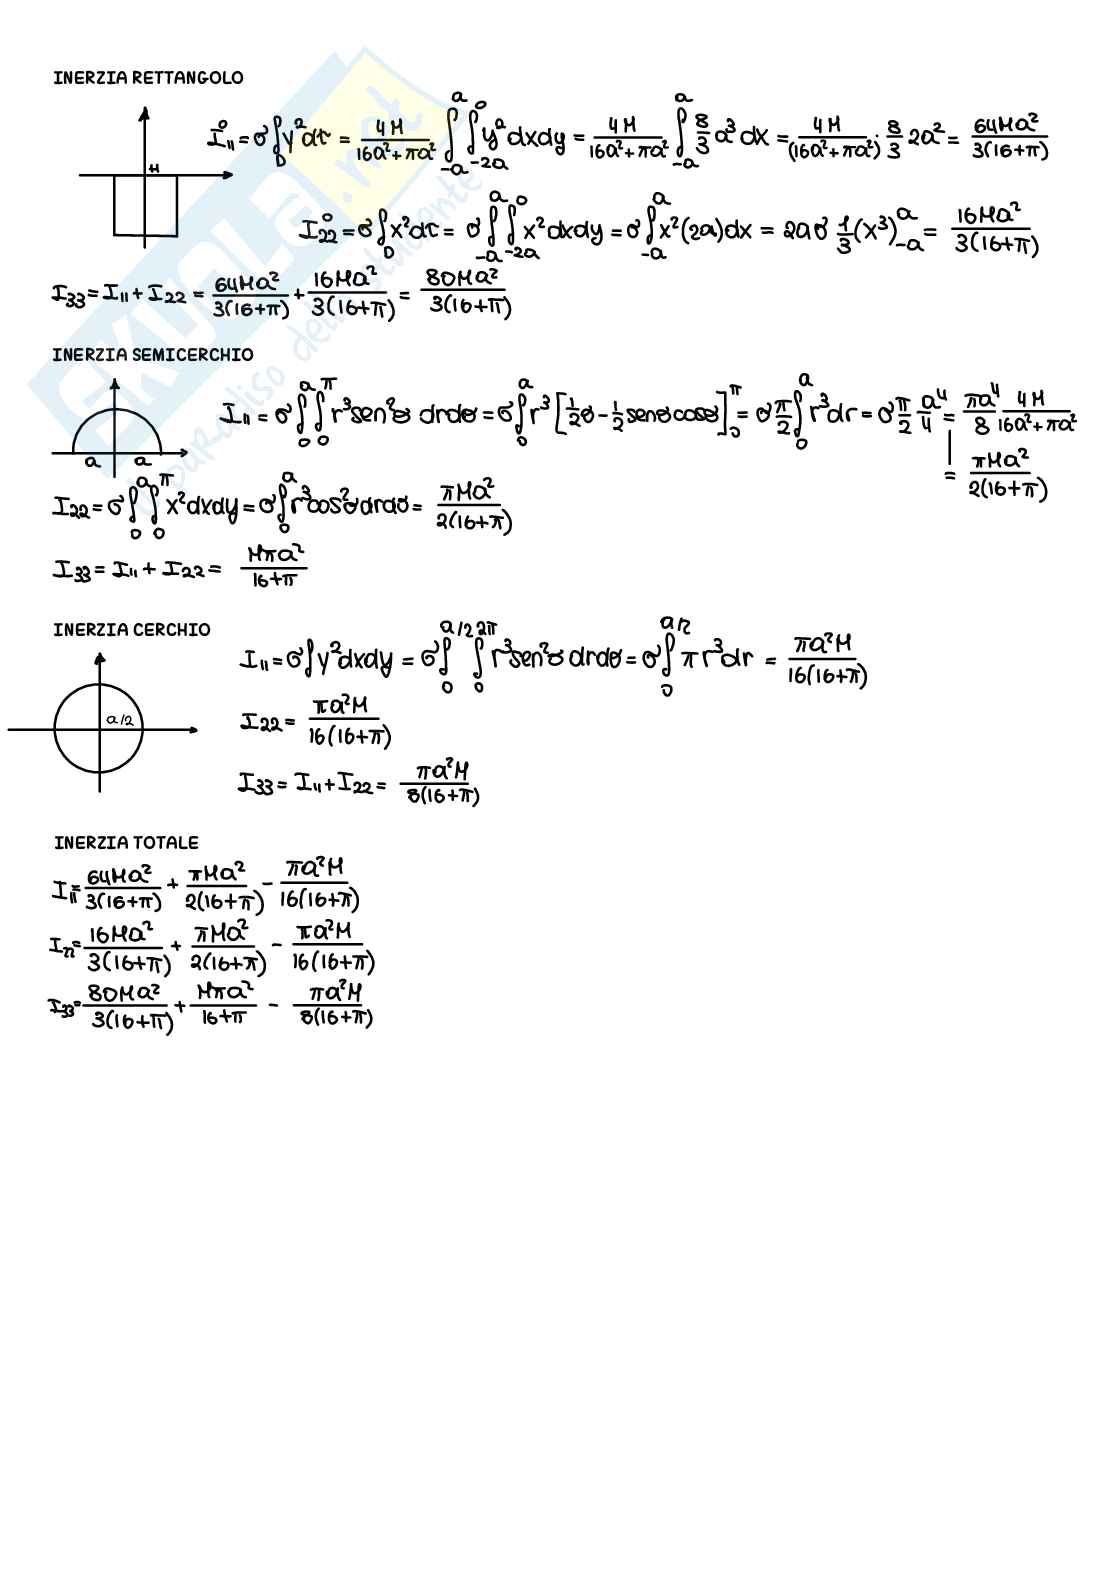 INERZIA RETTANGOLO
I₁₁⁰ = σ∫_D y² dτ = 4M/(16a²+πa²) ∫_{-a}^{a} ∫_{-2a}^{0} y² dxdy = 4M/(16a²+πa²) ∫_{-a}^{a} 8/3 a³ dx = 4M/(16a²+πa²) · 8/3 2a² = 64Ma²/3(16+π)
H
I₂₂⁰ = σ∫_D x² dτ = σ∫_{-a}^{a} ∫_{-2a}^{0} x² dxdy = σ∫_{-a}^{a} x²(2a)dx = 2aσ 1/3 (x³)_{-a}^{a} = 16Ma²/3(16+π)
I₃₃ = I₁₁ + I₂₂ = 64Ma²/3(16+π) + 16Ma²/3(16+π) = 80Ma²/3(16+π)
INERZIA SEMICERCHIO
I₁₁ = σ∫_0^a ∫_0^π r³sen²θ drdθ = σ∫_0^a r³ [1/2 θ - 1/2 senθcosθ]_0^π = σ π/2 ∫_0^a r³dr = σ π/2 a⁴/4 = πa⁴/8 4M/(16a²+πa²)
a a
= πMa²/2(16+π)
I₂₂ = σ∫_0^a ∫_0^π x² dxdy = σ∫_0^a r³cos²θdrdθ = πMa²/2(16+π)
I₃₃ = I₁₁ + I₂₂ = Mπa²/16+π
INERZIA CERCHIO
I₁₁ = σ∫y² dxdy = σ∫_0^{a/2} ∫_0^{2π} r³sen²θ drdθ = σ∫_0^{a/2} π r³dr = πa²M/16(16+π)
a/2
I₂₂ = πa²M/16(16+π)
I₃₃ = I₁₁ + I₂₂ = πa²M/8(16+π)
INERZIA TOTALE
I₁₁ = 64Ma²/3(16+π) + πMa²/2(16+π) - πa²M/16(16+π)
I₂₂ = 16Ma²/3(16+π) + πMa²/2(16+π) - πa²M/16(16+π)
I₃₃ = 80Ma²/3(16+π) + Mπa²/16+π - πa²M/8(16+π)
SKUOLA.net
paradiso dello studente